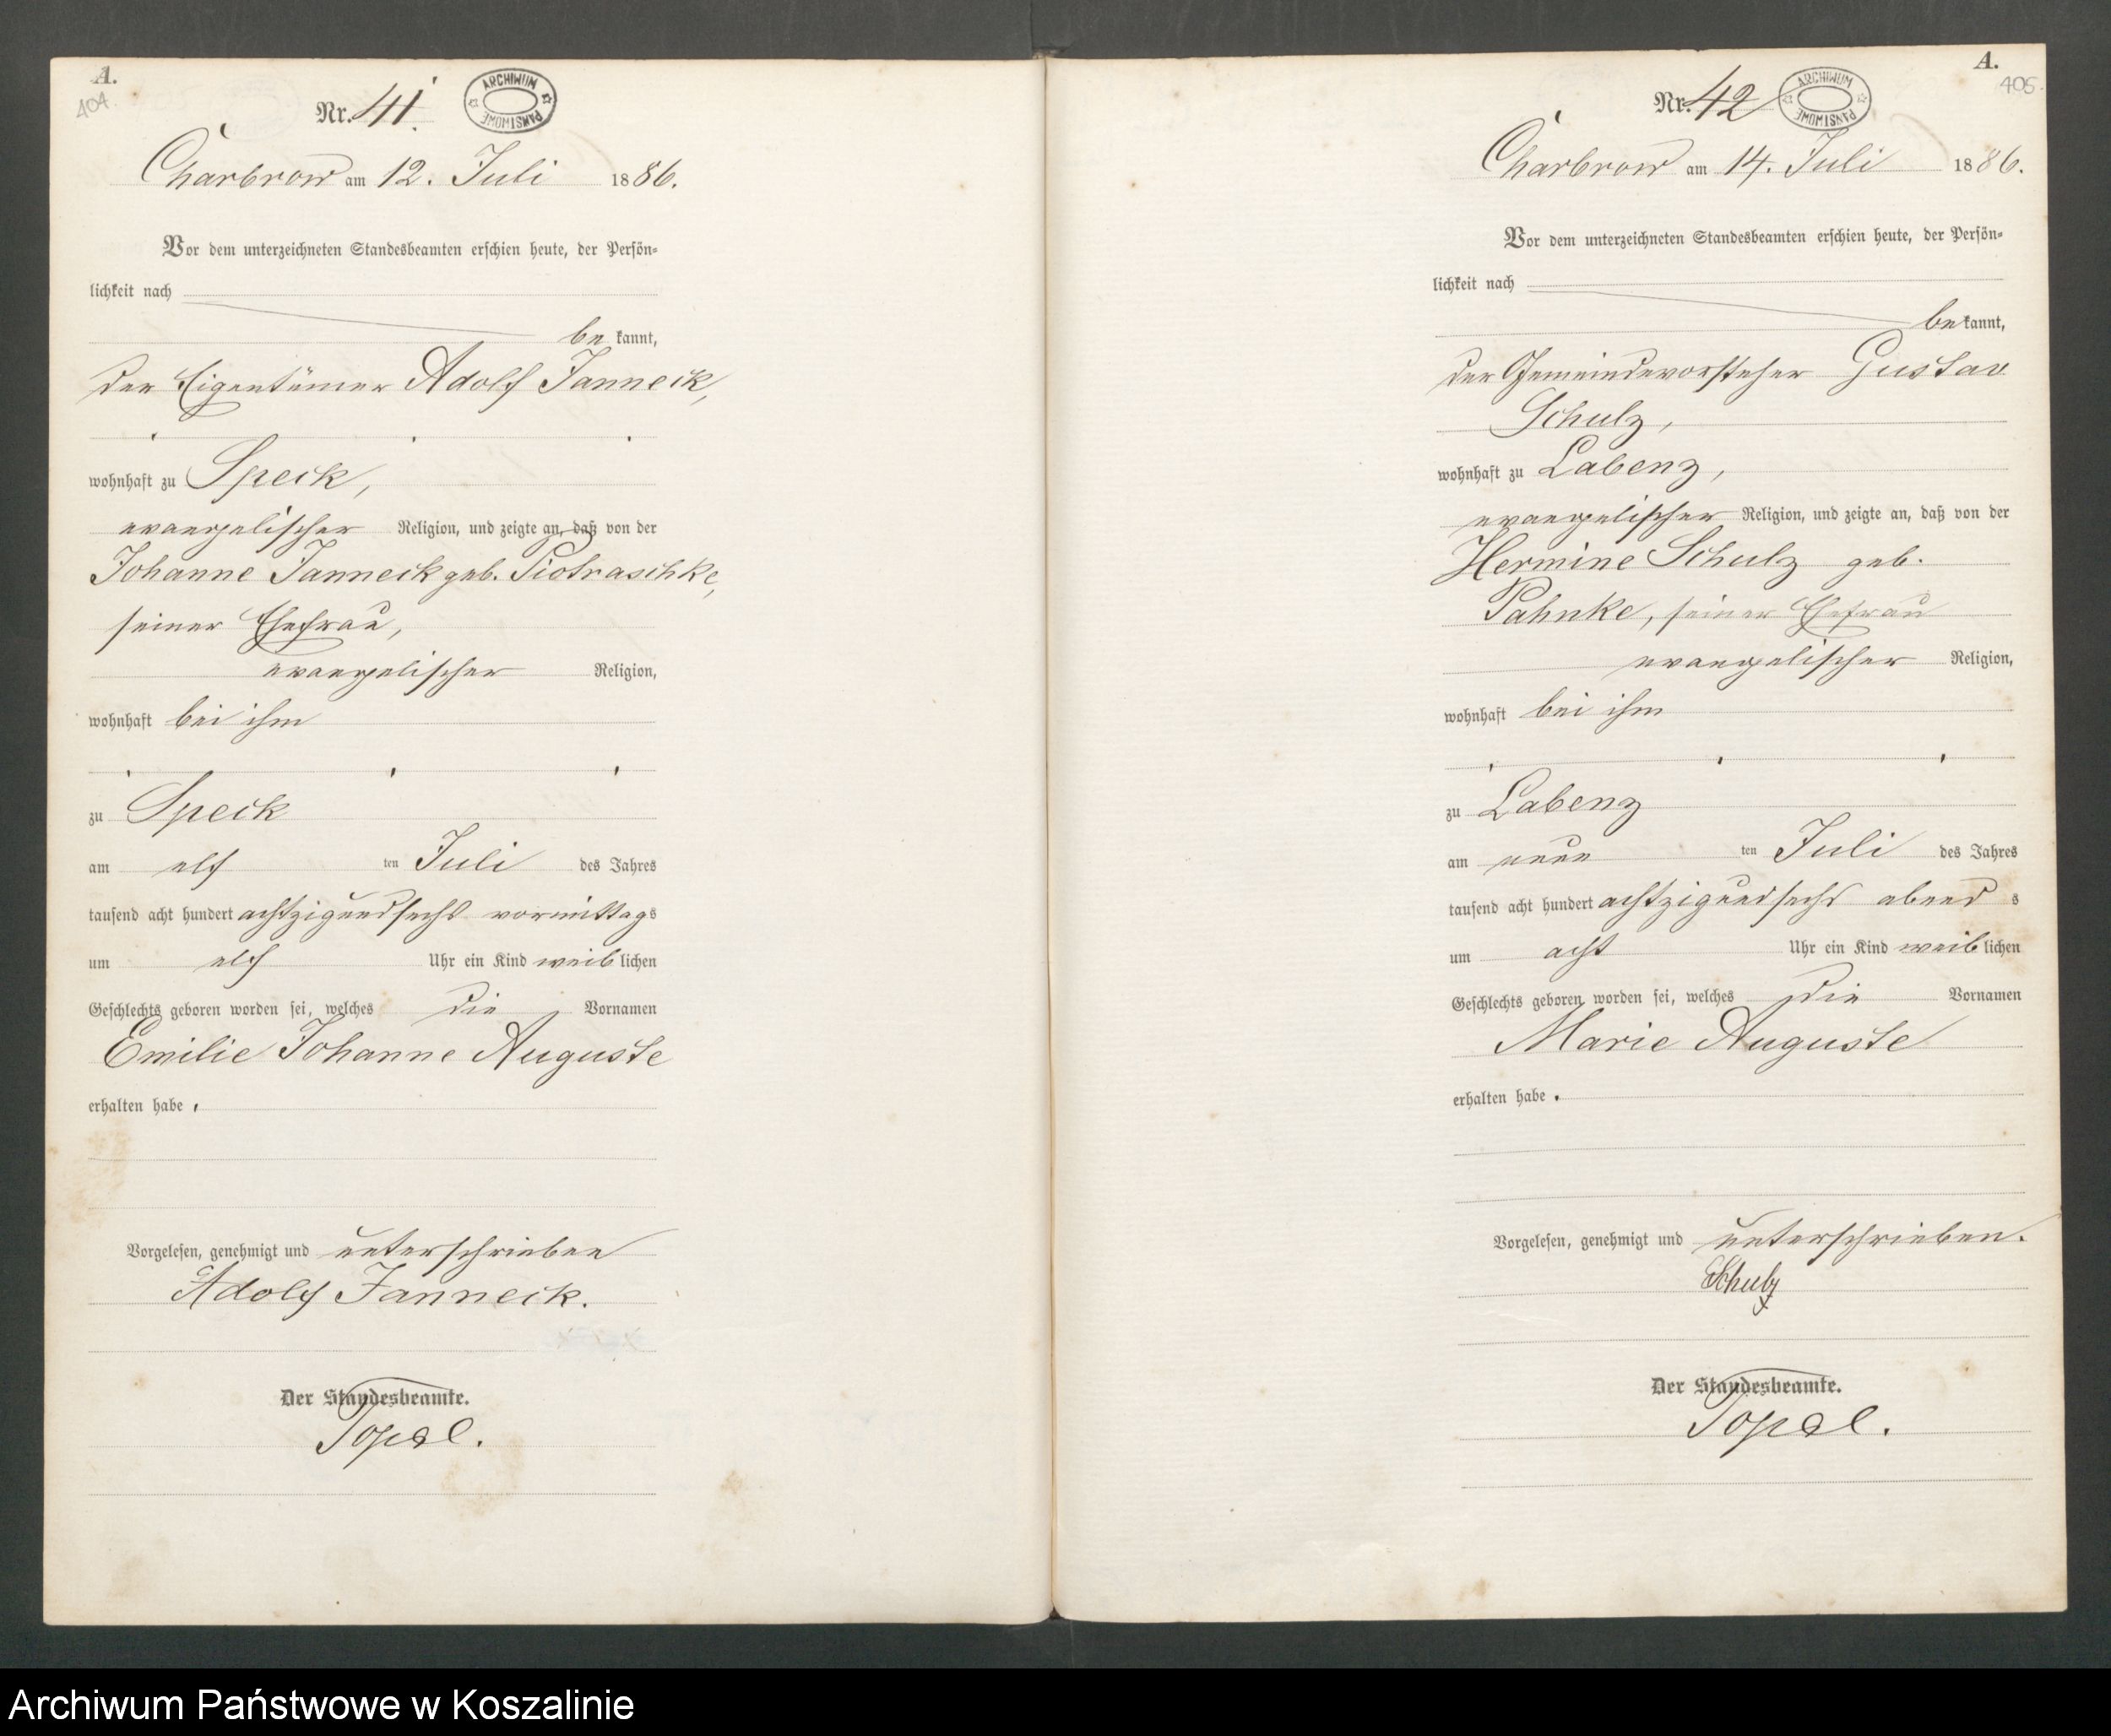 A.
404.
Nr. 41.
ARCHIWUM PAŃSTWOWE
Charbrow am 12. Juli 1886.
Vor dem unterzeichneten Standesbeamten erschien heute, der Persön-
lichkeit nach
be kannt,
der Eigentümer Adolf Janneck,
wohnhaft zu Speck,
evangelischer Religion, und zeigte an, daß von der
Johanne Janneck geb. Piotraschke,
seiner Ehefrau,
evangelischer Religion,
wohnhaft bei ihm
zu Speck
am elf ten Juli des Jahres
tausend acht hundert achtzigundsechs vormittags
um elf Uhr ein Kind weiblichen
Geschlechts geboren worden sei, welches die Vornamen
Emilie Johanne Auguste
erhalten habe.
Vorgelesen, genehmigt und unterschrieben
Adolf Janneck.
Der Standesbeamte.
Topel.
A.
405.
Nr. 42
ARCHIWUM PAŃSTWOWE
Charbrow am 14. Juli 1886.
Vor dem unterzeichneten Standesbeamten erschien heute, der Persön-
lichkeit nach
bekannt,
der Gemeindevorsteher Gustav
Schulz,
wohnhaft zu Labenz,
evangelischer Religion, und zeigte an, daß von der
Hermine Schulz geb.
Pahnke, seiner Ehefrau
evangelischer Religion,
wohnhaft bei ihm
zu Labenz
am neun ten Juli des Jahres
tausend acht hundert achtzigundsechs abends
um acht Uhr ein Kind weiblichen
Geschlechts geboren worden sei, welches die Vornamen
Marie Auguste
erhalten habe.
Vorgelesen, genehmigt und unterschrieben.
Schulz
Der Standesbeamte.
Topel.
Archiwum Państwowe w Koszalinie